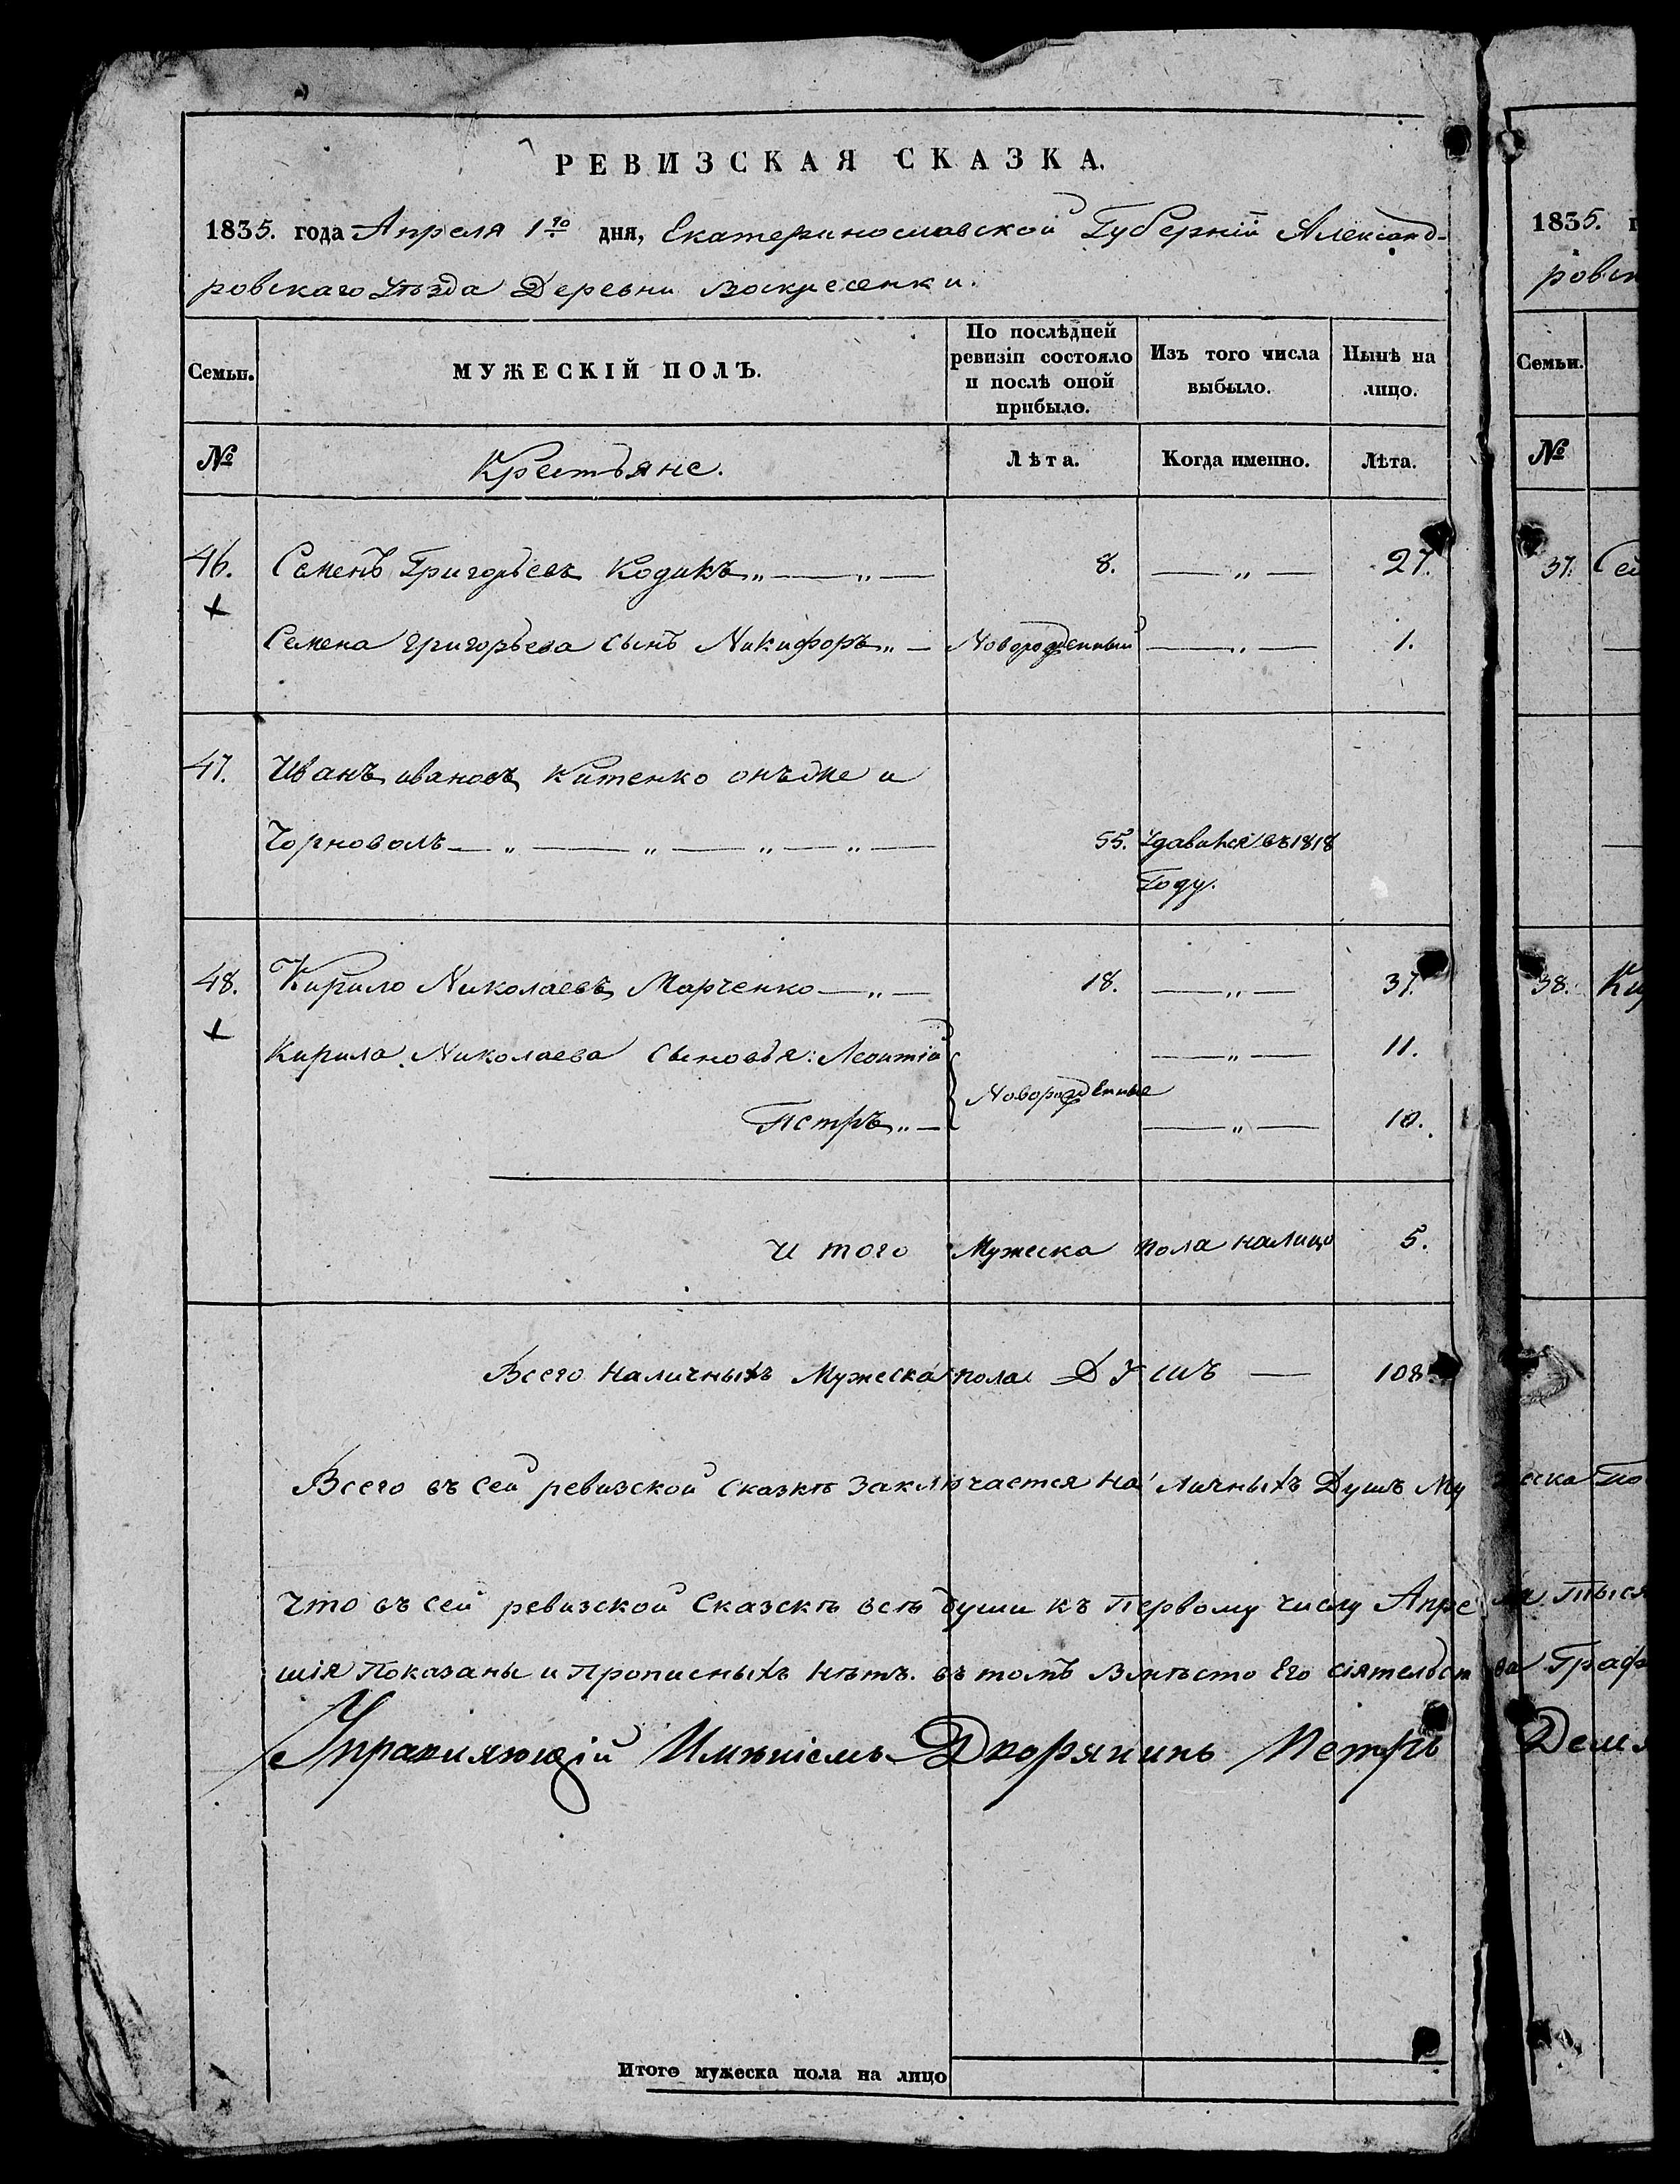 РЕВИЗСКАЯ СКАЗКА.
1835. года Апреля 1го дня, Екатеринославской Губерніи Александ-
ровскаго уѣзда Деревни Воскресенки.
Семьи. МУЖЕСКІЙ ПОЛЪ. По послѣдней ревизіи состояло и послѣ оной прибыло. Изъ того числа выбыло. Нынѣ на лицо.
№ Крестьяне. Лѣта. Когда именно. Лѣта.
46. Семенъ Григорьевъ Кодакъ„ — „ — 8. — „ — 27.
+
Семена Григорьева сынъ Никифоръ„ — Новорожденный — „ — 1.
47. Иванъ ивановъ Китенко онъже и
Чорноволъ — „ — „ — „ — „ — 55. Удавился въ 1818
Году.
48. Кирило Николаевъ Марченко — „ — 18. — „ — 37.
+
Кирила Николаева сыновья: Леонтій — „ — 11.
Новорожденные
Петръ„ — — „ — 10.
и того Мужеска пола налицо 5.
Всего наличныхъ Мужеска пола Душъ — 108.
Всего въ сей ревизской сказкѣ заключается наличныхъ Душъ Му
Что въ сей ревизской Сказскѣ всѣ души къ Первому числу Апре
шія Показаны и Прописныхъ нѣтъ. въ томъ Вмѣсто Его сіятельст
Управляющій Имѣніемъ Дворянинъ Петръ
Итого мужеска пола на лицо
1835. г
ровск
Семьи.
№
37. Се
38. Ки
жеска по
ля тыся
ва Граф
Демя